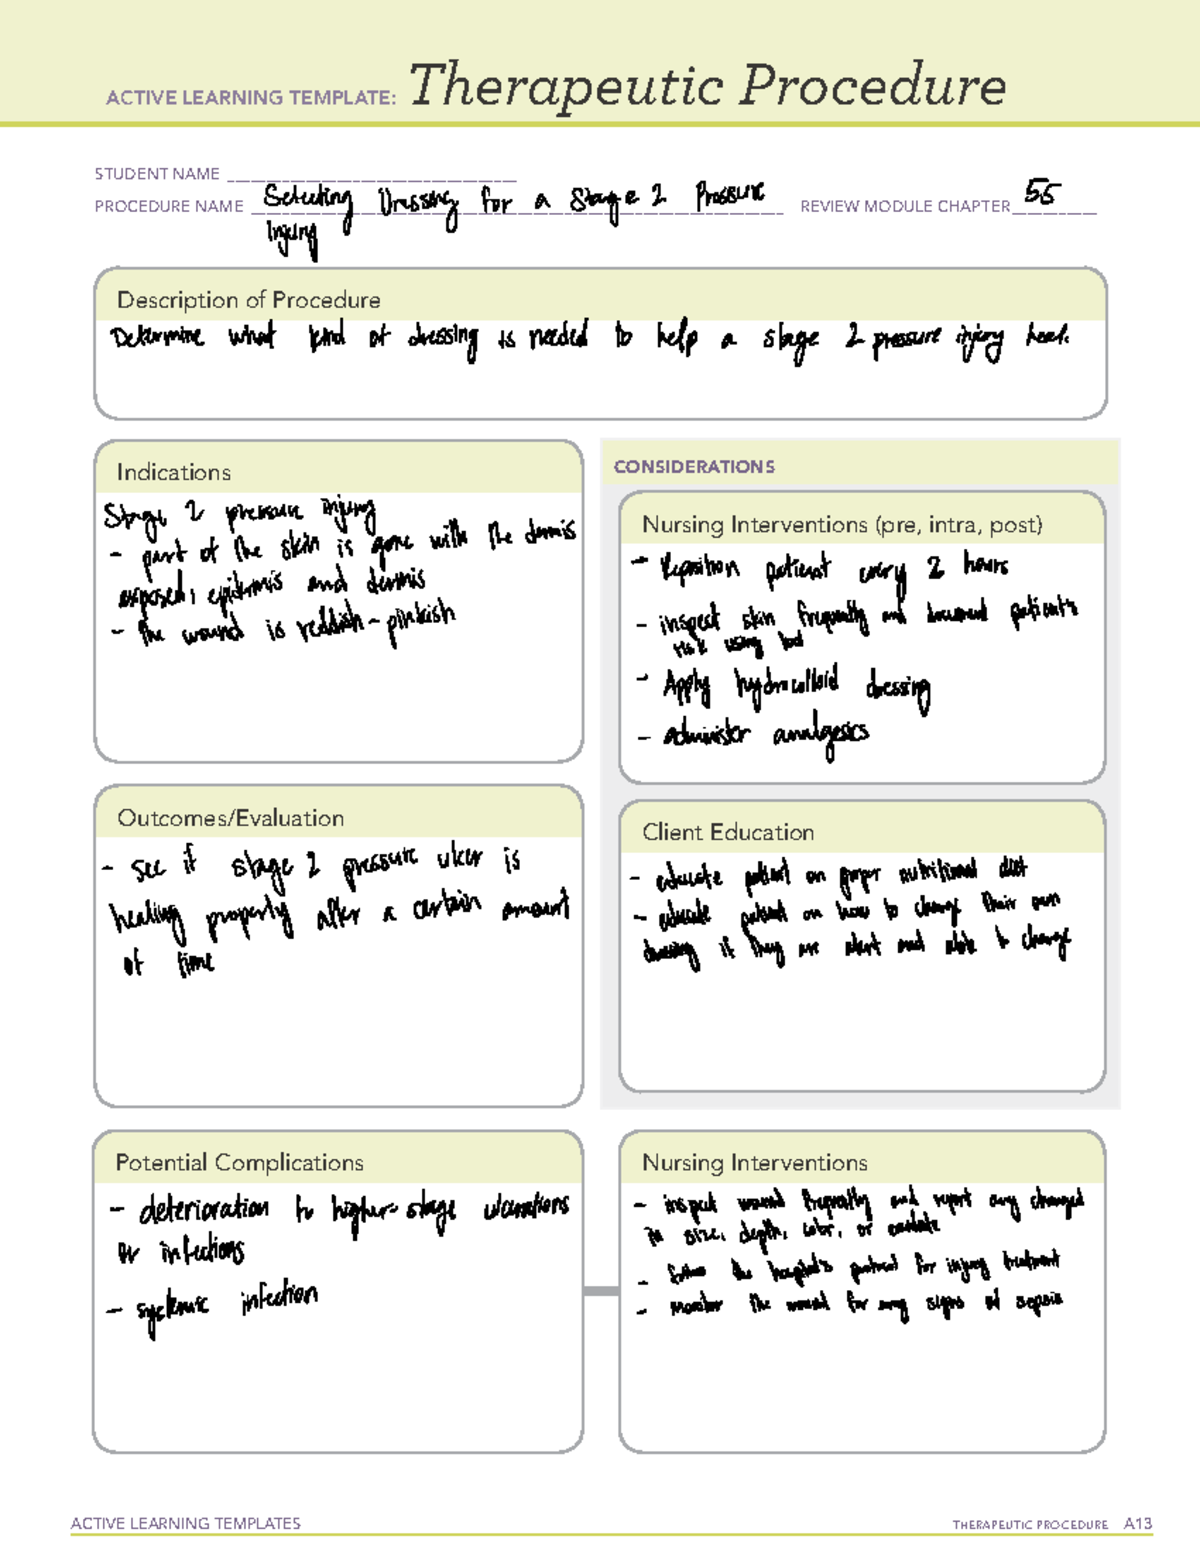 ACTIVE LEARNING TEMPLATE: Therapeutic Procedure
STUDENT NAME
PROCEDURE NAME Selecting Dressing for a Stage 2 Pressure REVIEW MODULE CHAPTER 55
Injury
Description of Procedure
Determine what kind of dressing is needed to help a stage 2 pressure injury heal.
Indications
Stage 2 pressure injury
- part of the skin is gone with the dermis
exposed, epidermis and dermis
- the wound is reddish-pinkish
CONSIDERATIONS
Nursing Interventions (pre, intra, post)
- Reposition patient every 2 hours
- inspect skin frequently and document patient's
risk using tool
- Apply hydrocolloid dressing
- administer analgesics
Outcomes/Evaluation
- see if stage 2 pressure ulcer is
healing properly after a certain amount
of time
Client Education
- educate patient on proper nutritional diet
- educate patient on how to change their own
dressing if they are alert and able to change
Potential Complications
- deterioration to higher-stage ulcerations
or infections
- systemic infection
Nursing Interventions
- inspect wound frequently and report any changes
in size, depth, color, or exudate
- follow the hospital's protocol for injury treatment
- Monitor the wound for any signs of sepsis
ACTIVE LEARNING TEMPLATES
THERAPEUTIC PROCEDURE A13